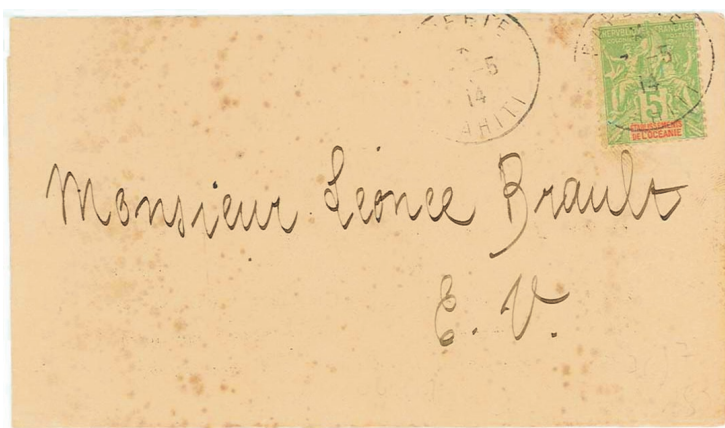 PAPEETE
-5
14
TAHITI
REPUBLIQUE FRANÇAISE
5
ETABLISSEMENTS
DE L'OCEANIE
Monsieur Léonce Brault
E. V.